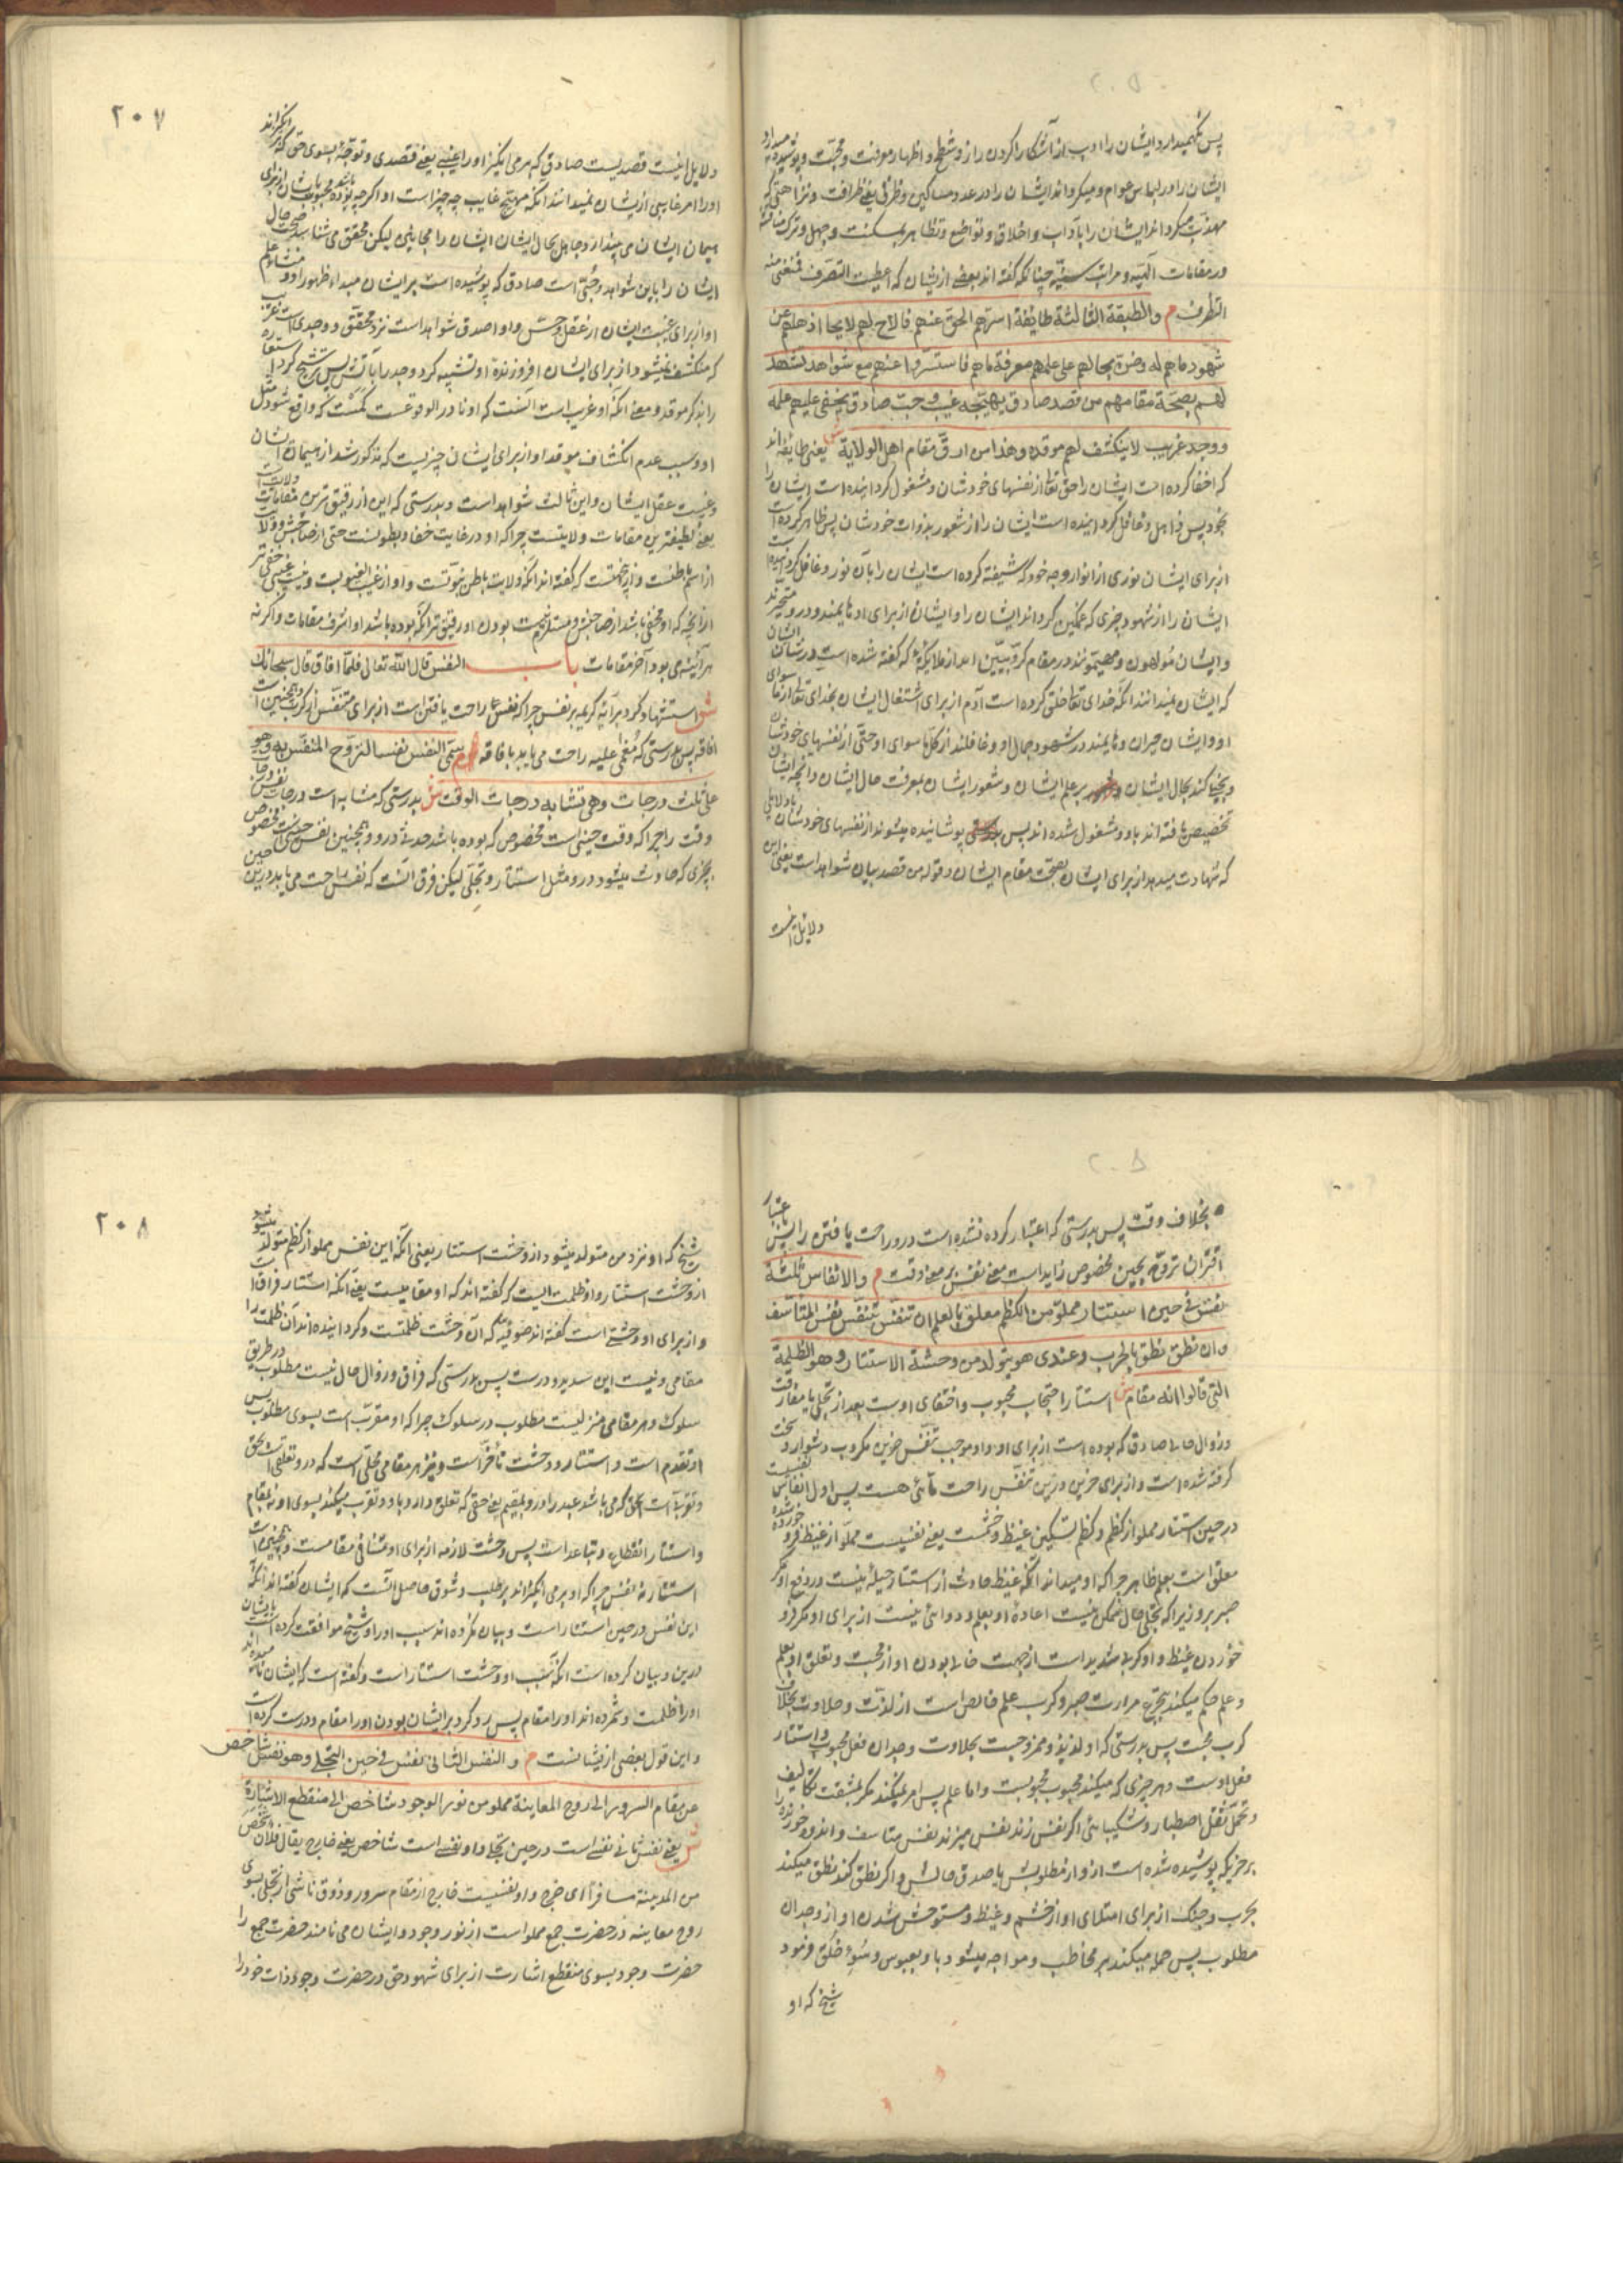 پس نگهمیدارد ایشان را ادب از آشکارا کردن راز و شطح و اظهار معرفت و محبت و پوشیده میدارد
ایشان را در لباس عوام و میگرداند ایشان را در عدد مساکین و ظرفی یعنی ظرافت و نزاهتی که
مهذب میگرداند ایشان را بآداب و اخلاق و تواضع و تظاهر بمسکنت و جهل و ترک مناقشه
در مقامات الهیه و مراتب سنیه چنانکه گفته اند بعضی از ایشان که اعطیت التصرف فمنعنی منه
التظرف م والطبقة الثالثة طایفة اسرّهم الحق عنهم فالاح لهم لایحا اذهلهم عن
شهود ما هم له وضنّ بحالهم علی علمهم معرفة ما هم فاستسرّوا عنهم مع شواهد تشهد
لهم بصحة مقامهم من قصد صادق یهیّجه غیب و حبّ صادق یخفی علیهم علمه
ووجد غریب لا ینکشف لهم موقده وهذا من ادقّ مقام اهل الولایة ش یعنی طایفه اند
که اخفا کرده است ایشان را حق تعالی از نفسهای خودشان و مشغول گردانیده است ایشان را
بخود پس ذاهل و غافل گردانیده است ایشان را از شعور بذوات خودشان پس ظاهر کرده است
از برای ایشان نوری از انوار وجه خود که شیفته کرده است ایشان را بآن نور و غافل گردانیده
ایشان را از شهود چیزی که ممکن گرداند ایشان را و ایشان از برای او هایمند و درو متحیرند
و ایشان مولهون و مهیمونند در مقام کروبیین اند از ملایکه که گفته شده است در شأن ایشان
که ایشان نمیدانند آنکه خدای تعالی خلق کرده است آدم از برای اشتغال ایشان بخدای تعالی از ما سوای
او و ایشان حیران و هایمند در شهود جمال او و غافلند از کل ما سوای او حتی از نفسهای خودشان
و بخیلی کند بحال ایشان بر علم ایشان و شعور ایشان بمعرفت حال ایشان و آنچه ایشان
تخصیص یافته اند باو و مشغول شده اند پس پوشانیده میشوند از نفسهای خودشان با دلایلی
که شهادت میدهد از برای ایشان بصحت مقام ایشان و قوله من قصد بیان شواهد است یعنی این
دلایل اینست
۲۰۷
دلایل اینست قصدیست صادق که برمی انگیزاند او را غیبی یعنی قصدی و توجه بسوی حق که برانگیزاند
او را امر غایبی از ایشان نمیدانند آنکه مهیج غایب چه چیز است و اگرچه بوده باشد محبوب ایشان از برای
هیمان ایشان می پندارد جاهل بحال ایشان ایشان را مجانین لیکن محقق می شناسد صحت حال
ایشان را باین شواهد و حبّی است صادق که پوشیده است بر ایشان مبداء ظهور او و منشاء علم
او از برای غیبت ایشان از عقل و حسّ و او اصدق شواهد است نزد محقق و وجدی است غریب
که منکشف نمیشود از برای ایشان افروزنده او تشبیه کرد وجد را بآتش پس ترشیح کرد استعاره
را بذکر موقد و معنی آنکه او غریب است آنست که او نادر الوقوعست کم است که واقع شود مثل
او و سبب عدم انکشاف موقد او از برای ایشان چیزیست که مذکور شد از هیمان ایشان
و غیبت عقل ایشان و این ثالث شواهد است و بدرستی که این از دقیق ترین مقامات ولایت است
یعنی لطیفترین مقامات ولایتست چرا که او در غایت خفا و بطونست حتی از صاحبش و ولایت
از اسم باطنست و ازینجهتست که گفته اند آنکه ولایت باطن نبوتست و او از غیب الغیوبست و نیست غیبی خفی تر
از آنچه که او مخفی باشد از صاحبش و مستلزم نیست بودن او دقیق تر آنکه بوده باشد او اشرف مقامات و اگر نه
هر آینه می بود آخر مقامات باب النفس قال الله تعالی فلما افاق قال سبحانک
ش استشهاد کرد برایه کریمه بر نفس چرا که نفس راحت یافتن است از برای متنفس از کرب و همچنین است
افاقه پس بدرستی که مغمی علیه راحت می یابد بافاقه م سمّی النفس نفسا لتروّح المتنفّس به وهو
علی ثلث درجات وهی تشابه درجات الوقت ش بدرستی که مشابه است درجات نفس درجات
وقت را چرا که وقت حینی است مخصوص که بوده باشد حدثی درو و همچنین نفس حینی است مخصوص
بچیزی که حادث میشود درو مثل استتار و تجلی لیکن فرق آنست که نفس راحت می یابد درین حین
بخلاف وقت پس بدرستی که اعتبار کرده نشده است درو راحت یافتن را پس باعتبار
اقتران تروّح بحین مخصوص زاید است معنی نفس بر معنی وقت م والانفاس ثلثة
نفس فی حین استتار مملوّ من الکظم معلق بالعلم ان تنفّس تنفّس نفس المتأسّف
وان نطق نطق بالحرب وعندی هو یتولد من وحشة الاستتار وهو الظلمة
التی قالوا انه مقام ش استتار احتجاب محبوب و اختفای اوست بعد از تجلی یا مفارقت
و زوال حال صادق که بوده است از برای او و او موجب تنفّس حزین مکروب دشوار و سخت
گرفته شده است و از برای حزین درین تنفّس راحت مّائی هست پس اول انفاس نفسیست
در حین استتار مملو از کظم و کظم تسکین غیظ و خشمست یعنی نفسیست مملوّ از غیظ فرو خورده شده
معلق است بعلم ظاهر چرا که او میداند آنکه غیظ حادث از استتار حیله نیست در دفع او مگر
صبر برو زیرا که تجلی حال ممکن نیست اعاده او بعلم و دوائی نیست از برای او مگر فرو
خوردن غیظ و او کرب شدید است از جهت خالی بودن او از محبت و تعلق او بعلم
و علم حکم میکند بتجرّع مرارت صبر و کرب علم خالص است از لذت و حلاوت بخلاف
کرب محبت پس بدرستی که او لذیذ و ممزوجست بحلاوت وجدان فعل محبوب و استتار
فعل اوست و هر چیزی که میکند محبوب محبوبست و اما علم پس امر نمیکند مگر بمشقت تکالیف
و تحمّل ثقل اصطبار و شکیبائی اگر نفس زند نفس میزند نفس متاسف و اندوه خورنده
بر چیزیکه پوشیده شده است ازو از مطلوبش یا صدق حالش و اگر نطق کند نطق میکند
بحرب و جنگ از برای امتلای او از خشم و غیظ و مستوحش شدن او از وجدان
مطلوب پس حمله میکند بر مخاطب و مواجه میشود باو بعبوس و سوء خلق و فرمود
شیخ که او
۲۰۸
شیخ که او نزد من متولد میشود از وحشت استتار یعنی آنکه این نفس مملو از کظم متولد میشود
از وحشت استتار و او ظلمت الیست که گفته اند که او مقامیست یعنی آنکه استتار فراق است
و از برای او وحشتی است گفته اند صوفیه که آن وحشت ظلمتست و گردانیده اند آن ظلمت را
مقامی و نیست این سدید و درست پس بدرستی که فراق و زوال حال نیست مطلوب در طریق
سلوک و هر مقامی منزلیست مطلوب در سلوک چرا که او مقرّب است بسوی مطلوب پس
او تقدم است و استتار و وحشت تأخّر است و نیز هر مقامی محلّی است که درو تعلقی است بحق
و تقرّب است بحق که می باشد عبد را درو و مقیم یعنی حقی که تعلق دارد باو و تقرب میکند بسوی او بآن مقام
و استتار انقطاع و تباعد است پس وحشت لازمه از برای او منافی مقامست و همچنین است
استتار نه نفس چرا که او برمی انگیزاند بر طلب و شوق حاصل آنست که ایشان گفته اند آنکه
این نفس در حین استتار است و بیان نکرده اند سبب او را و شیخ موافقت کرده است با ایشان
درین و بیان کرده است آنکه سبب او وحشت استتار است و گفته است که ایشان نامیده اند
او را ظلمت و شمرده اند او را مقام پس رد کرد بر ایشان بودن او را مقام و درست کرده است
و این قول بعضی از ایشانست م والنفس الثانی نفس فی حین التجلی وهو نفس شاخص
عن مقام السرور الی روح المعاینة مملو من نور الوجود شاخص الی منقطع الاشارة
ش یعنی نفس ثانی نفسی است در حین تجلی و او نفسی است شاخص یعنی خارج یقال فلان شخص
من المدینة مسافرا ای خرج و او نفسیست خارج از مقام سرور و ذوق ناشی از تجلی بسوی
روح معاینه در حضرت جمع مملو است از نور وجود و ایشان می نامند حضرت جمع را
حضرت وجود بسوی منقطع اشارت از برای شهود حق در حضرت وجود ذات خود را